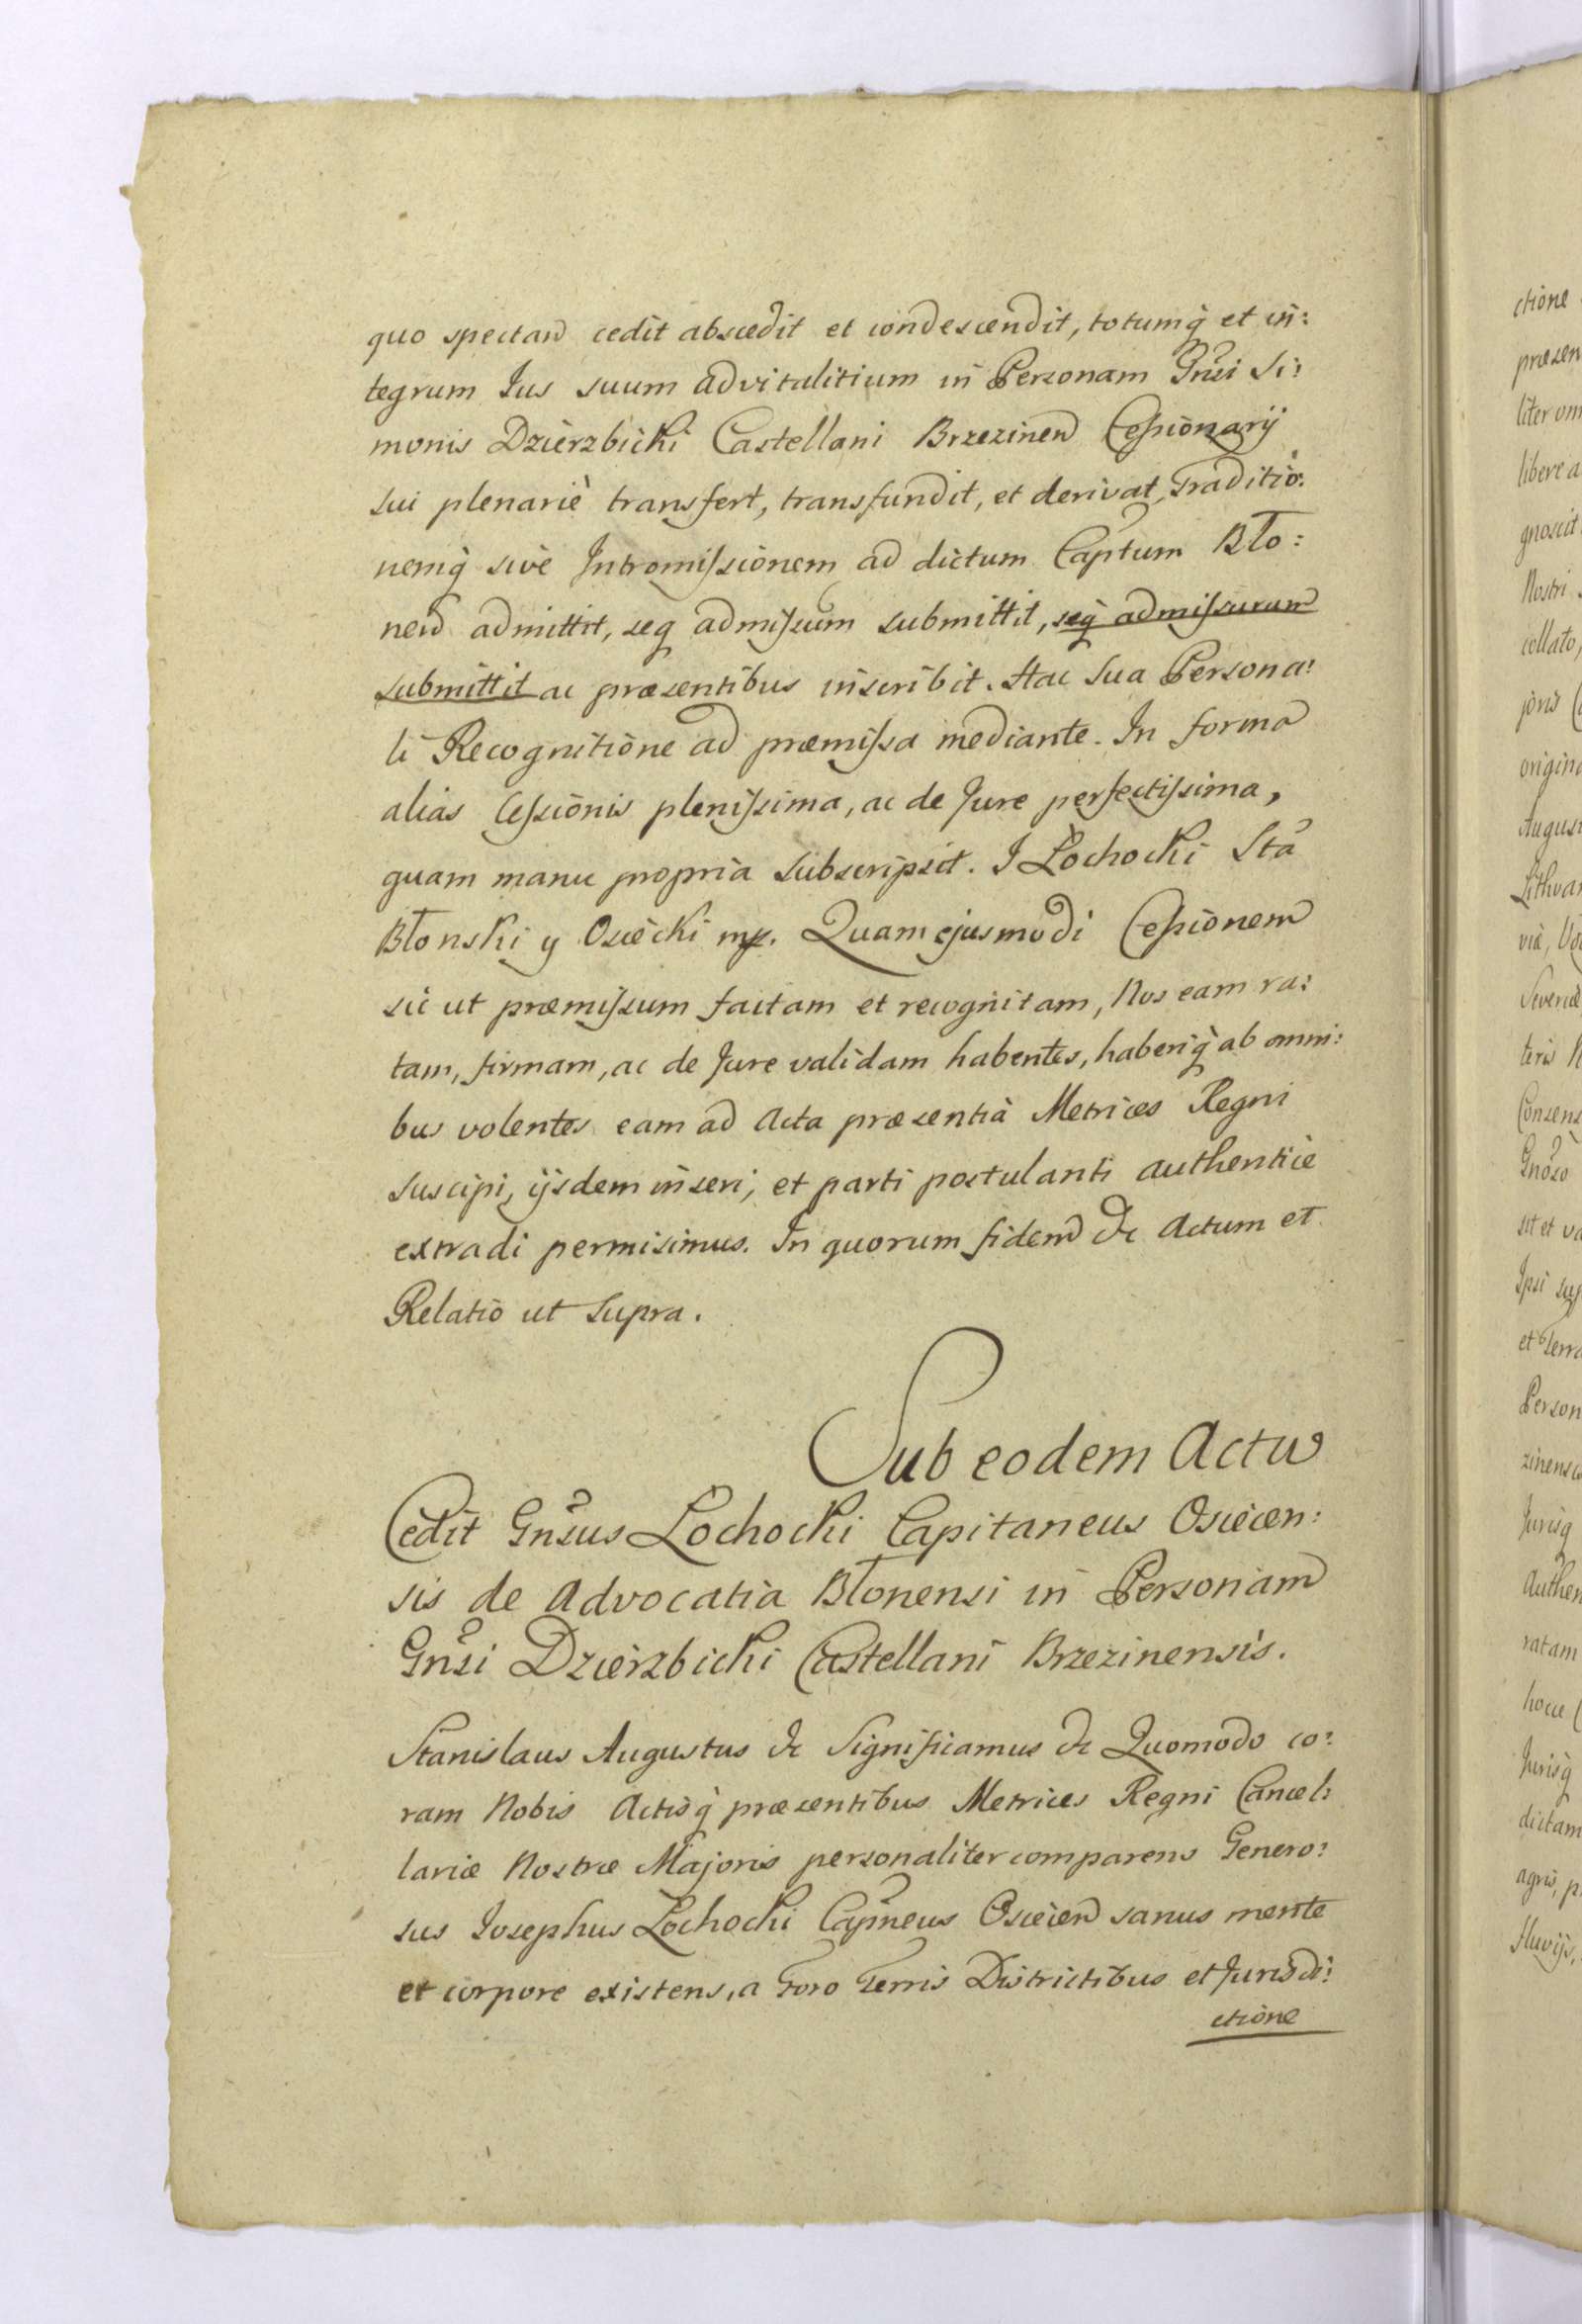 quo spectand cedit abscedit et condescendit, totumq̀ et in:
tegrum Jus suum advitalitium in Personam Gnsi Si:
monis Dzierzbicki Castellani Brzezinen Cessionarij
sui plenariè transfert, transfundit, et derivat, Traditio:
nemq̀ sivè Intromissionem ad dictum Captum Bło:
nen admittit, seq admissum submittit, seq̀ admissurum
submittit ac præsentibus inscribit. Hac sua Persona:
li Recognitione ad præmissa mediante. In forma
alias Cessionis plenissima, ac de Jure perfectissima,
quam manu propria subscripsit. J Łochocki Sta
Błonski y Osiecki mp. Quam ejusmodi Cessionem
sic ut præmissum factam et recognitam, Nos eam ra:
tam, firmam, ac de Jure validam habentes, haberiq̀ ab omni:
bus volentes eam ad Acta præsentia Metrices Regni
suscipi, ijsdem inseri, et parti postulanti authenticè
extradi permisimus. In quorum fidem &c Actum et
Relatio ut supra.
Sub eodem Actu
Cedit Gnsus Łochocki Capitaneus Osiecen:
sis de Advocatia Błonensi in Personam
Gnsi Dzierzbicki Castellani Brzezinensis.
Stanislaus Augustus &c Significamus &c Quomodo co:
ram Nobis Actisq̀ præsentibus Metrices Regni Cancel:
lariæ Nostræ Majoris personaliter comparens Genero:
sus Josephus Łochocki Capneus Osiecen sanus mente
et corpore existens, a Foro Terris Districtibus et Jurisdi:
ctione
ctione
præsen
liter om
libere a
gnoscit
Nostri
collato,
joris
origina
August
Lithva
viæ,
Severiæ
teris
Consens
Gnoso
sit et va
Ipsi sup
et Terra
Person
zinens
Jurisq
Authen
ratam
hocce
Jurisq̀
dictam
agris, p
fluvijs,